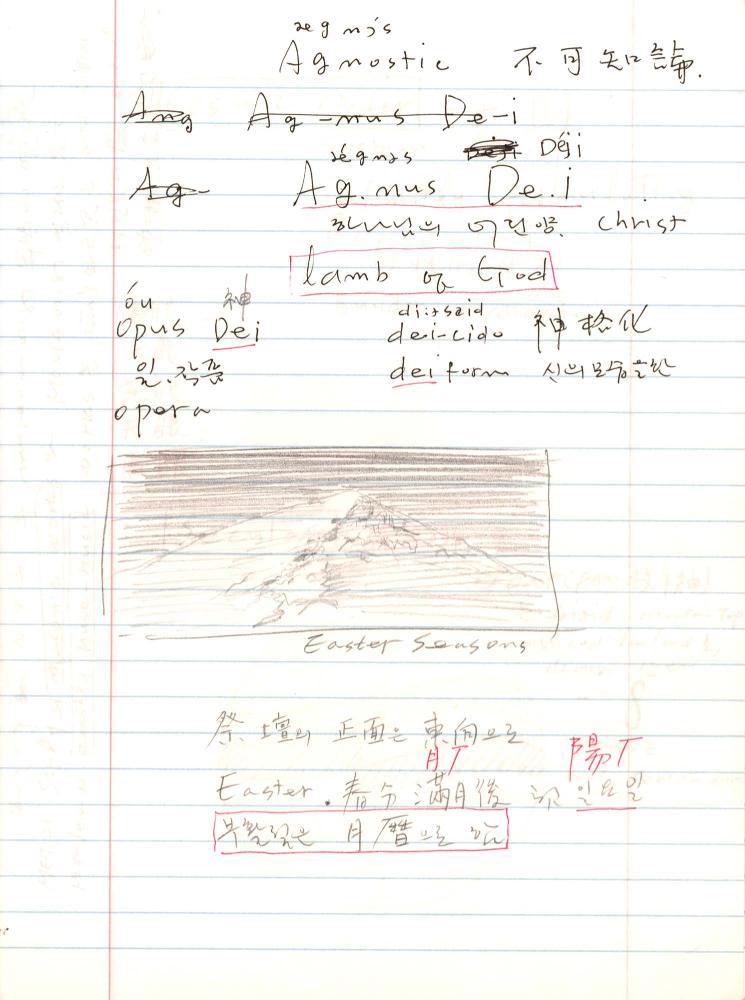 Agnostic 不可知論.
Ang Ag-nus De-i
Déji
Ag- Ag.nus De.i
하나님의 어린양. Christ
lamb of God
óu 神
Opus Dei dei-cide 神格化
일.작품 deiform 신의 모습을 한
opera
Easter Seasons
祭壇의 正面은 東向으로
月 陽
Easter. 春分 滿月後 첫 일요일
부활절은 月曆으로 함